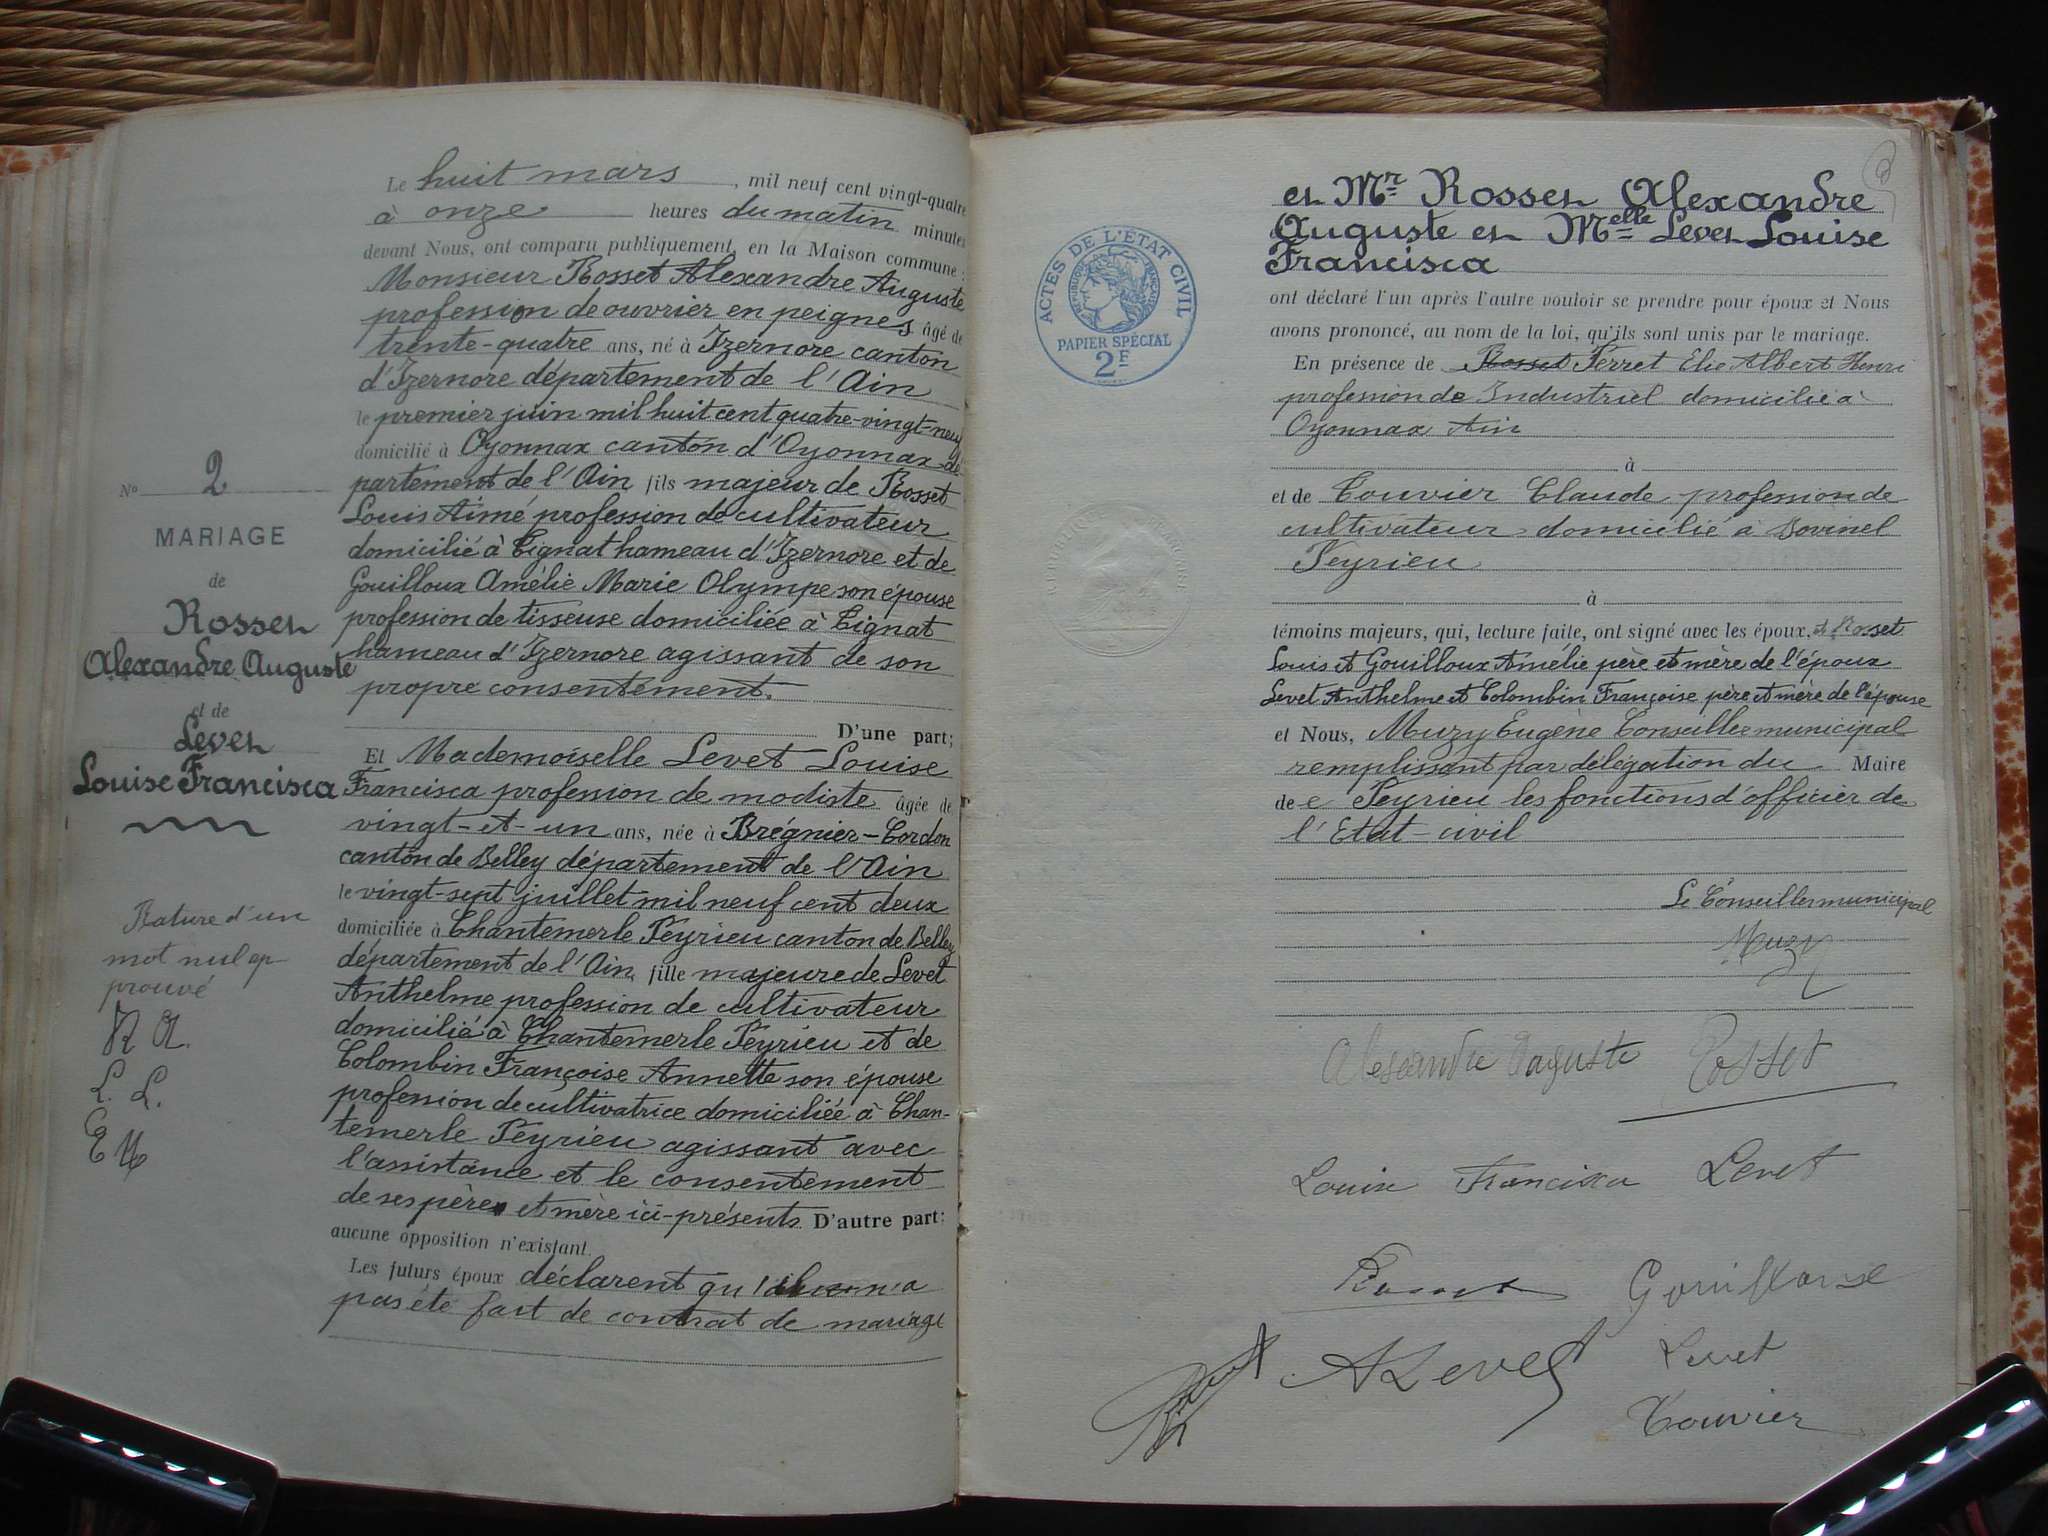 Le huit mars, mil neuf cent vingt-quatre
à onze heures du matin minutes
devant Nous, ont comparu publiquement en la Maison commune :
Monsieur Rosset Alexandre Auguste
profession de ouvrier en peignes âgé de
trente-quatre ans, né à Izernore canton
d'Izernore département de l'Ain
le premier juin mil huit cent quatre-vingt-neuf
domicilié à Oyonnax canton d'Oyonnax dé-
partement de l'Ain fils majeur de Rosset
Louis Aimé profession de cultivateur
domicilié à Tignat hameau d'Izernore et de
Gouilloux Amélie Marie Olympe son épouse
profession de tisseuse domiciliée à Tignat
hameau d'Izernore agissant de son
propre consentement.
D'une part;
Et Mademoiselle Levet Louise
Francisca profession de modiste âgée de
vingt-et-un ans, née à Brégnier-Cordon
canton de Belley département de l'Ain
le vingt-sept juillet mil neuf cent deux
domiciliée à Chantemerle Peyrieu canton de Belley
département de l'Ain, fille majeure de Levet
Anthelme profession de cultivateur
domicilié à Chantemerle Peyrieu et de
Colombin Françoise Annette son épouse
profession de cultivatrice domiciliée à Chan-
temerle Peyrieu agissant avec
l'assistance et le consentement
de ses père et mère ici-présents. D'autre part;
aucune opposition n'existant.
Les futurs époux déclarent qu'il n'a
pas été fait de contrat de mariage
No 2
MARIAGE
de
Rosset
Alexandre Auguste
et de
Levet
Louise Francisca
Rature d'un
mot nul ap-
prouvé
R A.
L. L.
E M
et Mr Rosset Alexandre
Auguste et Melle Levet Louise
Francisca
ont déclaré l'un après l'autre vouloir se prendre pour époux et Nous
avons prononcé, au nom de la loi, qu'ils sont unis par le mariage.
En présence de Rosset Perret Elie Albert Henri
profession de Industriel domicilié à
Oyonnax Ain
à
et de Touvier Claude profession de
cultivateur domicilié à Bovinel
Peyrieu
à
témoins majeurs, qui, lecture faite, ont signé avec les époux, et Rosset
Louis et Gouilloux Amélie père et mère de l'époux
Levet Anthelme et Colombin Françoise père et mère de l'épouse
et Nous, Muzy Eugène Conseiller municipal
remplissant par délégation du Maire
de Peyrieu les fonctions d'officier de
l'Etat-civil
Le Conseiller municipal
Muzy
Alexandre Auguste Rosset
Louise Francisca Levet
Rosset Gouilloux
A Levet Levet
Touvier
ACTES DE L'ÉTAT CIVIL
RÉPUBLIQUE FRANÇAISE
PAPIER SPÉCIAL
2F